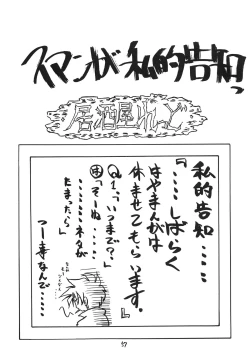 スマンが私的告知っ
居酒屋
私的告知……
『……しばらく
はやまんがは
休ませてもらいます。』
Q1.「いつまで？」
「そーね……
……ネタが
たまったら」
つー事なんで……